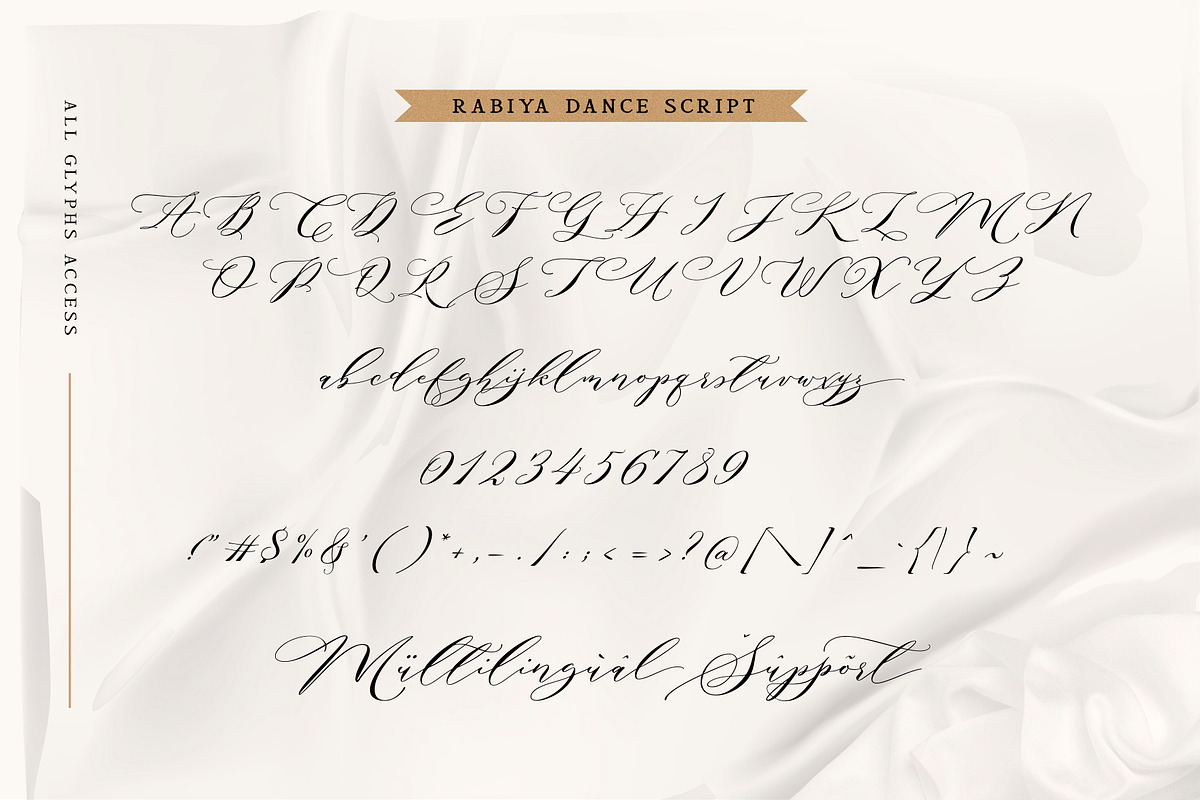 RABIYA DANCE SCRIPT
ALL GLYPHS ACCESS
A B C D E F G H I J K L M N
O P Q R S T U V W X Y Z
abcdefghijklmnopqrstuvwxyz
0123456789
!"#$%&'()*+,-./:;<=>?@[\]^_`{|}~
Mültilingùâl Šûppõrt